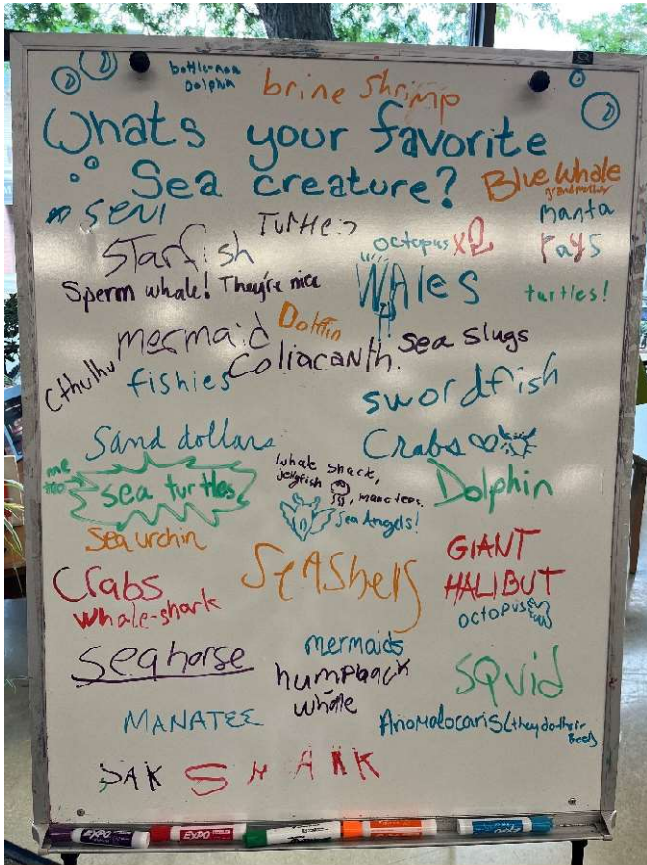 bottle-nose
Dolphin
brine shrimp
Whats your favorite
Sea creature?
Blue Whale
SENI
TurtLes
manta
rays
Starfish
octopus x2
Sperm whale! They're nice
WAles
turtles!
mermaid
Dolfin
Sea Slugs
Cthulhu
fishies
Coliacanth.
swordfish
Sand dollars
Crabs
me
too
sea turtles
whale shark,
jellyfish, manatees.
Sea Angels!
Dolphin
Sea urchin
SEAShells
GIANT
HALIBUT
Crabs
whale-shark
octopus
seahorse
mermaids
humpback
whale
squid
MANATEE
Anomalocaris (they do their
best)
SAK
SHARK
EXPO
EXPO